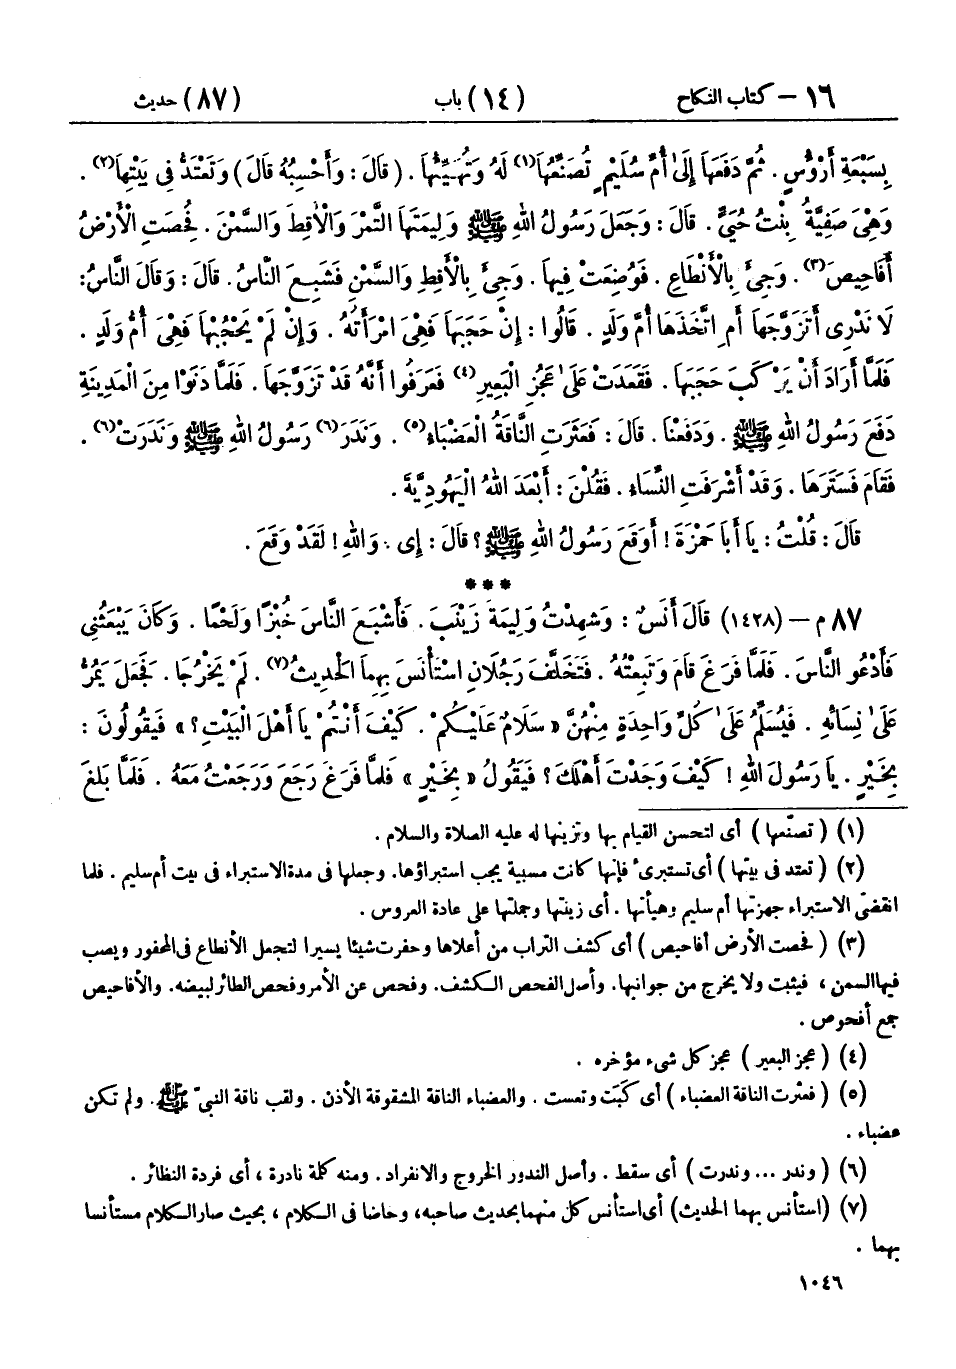 ١٦ – كتاب النكاح (١٤) باب (٨٧) حديث
بِسَبْعَةِ أَرْؤُسٍ . ثُمَّ دَفَعَهَا إِلَىٰ أُمِّ سُلَيْمٍ تُصَنِّعُهَا(١) لَهُ وَتُهَيِّئُهَا . ( قَالَ : وَأَحْسِبُهُ قَالَ ) وَتَعْتَدُّ فِي بَيْتِهَا(٢) .
وَهْىَ صَفِيَّةُ بِنْتُ حُيَيٍّ . قَالَ : وَجَعَلَ رَسُولُ اللهِ ﷺ وَلِيمَتَهَا التَّمْرَ وَالْأَقِطَ وَالسَّمْنَ . فُحِصَتِ الْأَرْضُ
أَفَاحِيصَ(٣) . وَجِيءَ بِالْأَنْطَاعِ . فَوُضِعَتْ فِيهَا . وَجِيءَ بِالْأَقِطِ وَالسَّمْنِ فَشَبِعَ النَّاسُ . قَالَ : وَقَالَ النَّاسُ :
لَا نَدْرِى أَتَزَوَّجَهَا أَمِ اتَّخَذَهَا أُمَّ وَلَدٍ . قَالُوا : إِنْ حَجَبَهَا فَهِىَ امْرَأَتُهُ . وَإِنْ لَمْ يَحْجُبْهَا فَهِىَ أُمُّ وَلَدٍ .
فَلَمَّا أَرَادَ أَنْ يَرْكَبَ حَجَبَهَا . فَقَعَدَتْ عَلَىٰ عَجُزِ الْبَعِيرِ(٤) فَعَرَفُوا أَنَّهُ قَدْ تَزَوَّجَهَا . فَلَمَّا دَنَوْا مِنَ الْمَدِينَةِ
دَفَعَ رَسُولُ اللهِ ﷺ . وَدَفَعْنَا . قَالَ : فَعَثَرَتِ النَّاقَةُ الْعَضْبَاءُ(٥) . وَنَدَرَ(٦) رَسُولُ اللهِ ﷺ وَنَدَرَتْ(٦) .
فَقَامَ فَسَتَرَهَا . وَقَدْ أَشْرَفَتِ النِّسَاءُ . فَقُلْنَ : أَبْعَدَ اللهُ الْيَهُودِيَّةَ .
قَالَ : قُلْتُ : يَا أَبَا حَمْزَةَ ! أَوَقَعَ رَسُولُ اللهِ ﷺ ؟ قَالَ : إِى . وَاللهِ ! لَقَدْ وَقَعَ .
* * *
٨٧ م – (١٤٢٨) قَالَ أَنَسٌ : وَشَهِدْتُ وَلِيمَةَ زَيْنَبَ . فَأَشْبَعَ النَّاسَ خُبْزًا وَلَحْمًا . وَكَانَ يَبْعَثُنِي
فَأَدْعُو النَّاسَ . فَلَمَّا فَرَغَ قَامَ وَتَبِعْتُهُ . فَتَخَلَّفَ رَجُلَانِ اسْتَأْنَسَ بِهِمَا الْحَدِيثُ(٧) . لَمْ يَخْرُجَا . فَجَعَلَ يَمُرُّ
عَلَىٰ نِسَائِهِ . فَيُسَلِّمُ عَلَىٰ كُلِّ وَاحِدَةٍ مِنْهُنَّ « سَلَامٌ عَلَيْكُمْ . كَيْفَ أَنْتُمْ يَا أَهْلَ الْبَيْتِ ؟ » فَيَقُولُونَ :
بِخَيْرٍ . يَا رَسُولَ اللهِ ! كَيْفَ وَجَدْتَ أَهْلَكَ ؟ فَيَقُولُ « بِخَيْرٍ » فَلَمَّا فَرَغَ رَجَعَ وَرَجَعْتُ مَعَهُ . فَلَمَّا بَلَغَ
(١) ( تصنّعها ) أى لتحسن القيام بها وتزينها له عليه الصلاة والسلام .
(٢) ( تعتد فى بيتها ) أى تستبرئ فإنها كانت مسبية يجب استبراؤها. وجعلها فى مدة الاستبراء فى بيت أم سليم . فلما
انقضى الاستبراء جهزتها أم سليم وهيأتها . أى زينتها وجملتها على عادة العروس .
(٣) ( فحصت الأرض أفاحيص ) أى كشف التراب من أعلاها وحفرت شيئا يسيرا لتجعل الأنطاع فى المحفور ويصب
فيها السمن ، فيثبت ولا يخرج من جوانبها. وأصل الفحص الكشف. وفحص عن الأمر وفحص الطائر لبيضه. والأفاحيص
جمع أفحوص .
(٤) ( عجز البعير ) عجز كل شىء مؤخره .
(٥) ( فعثرت الناقة العضباء ) أى كَبَت وتعست . والعضباء الناقة المشقوقة الأذن . ولقب ناقة النبىّ ﷺ. ولم تكن
عضباء .
(٦) ( وندر ... وندرت ) أى سقط . وأصل الندور الخروج والانفراد . ومنه كلمة نادرة ، أى فردة النظائر .
(٧) (استأنس بهما الحديث) أى استأنس كل منهما بحديث صاحبه، وخاضا فى الكلام ، بحيث صار الكلام مستأنسا
بهما .
١٠٤٦